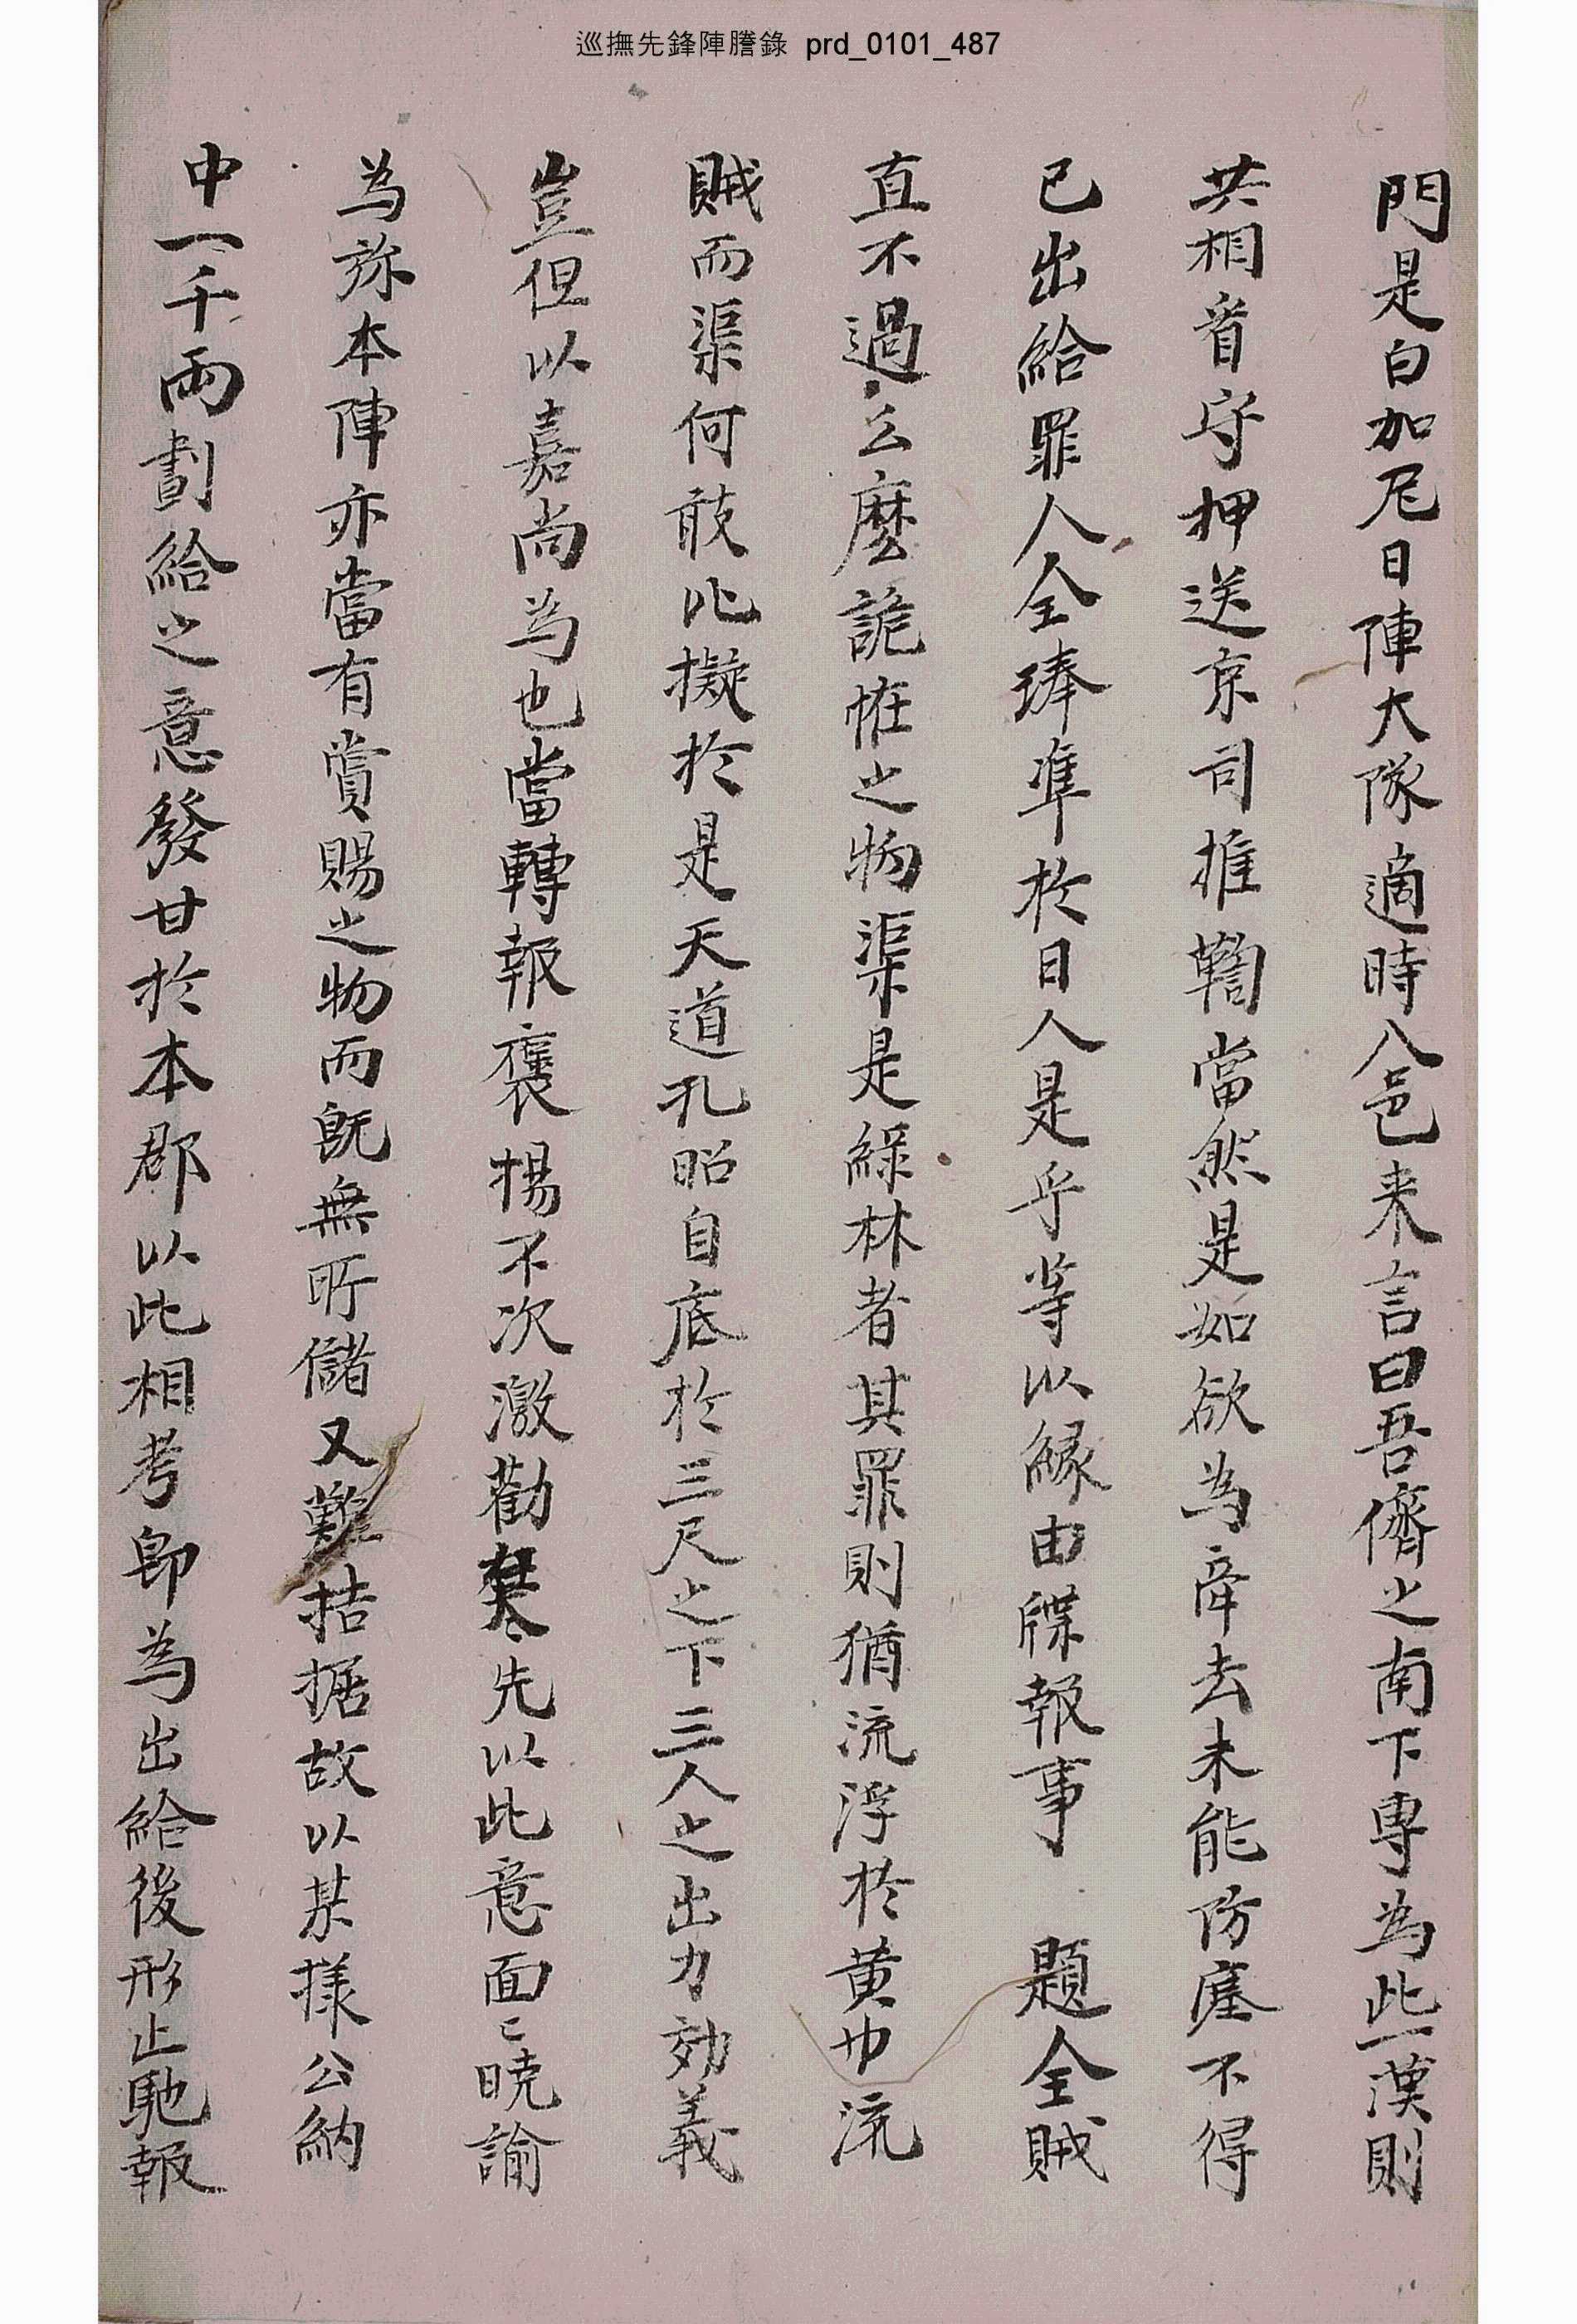 巡撫先鋒陣謄錄 prd_0101_487
門是白加尼日陣大隊適時入邑来言曰吾儕之南下專為此漢則
共相看守押送京司推鞫當然是如欲為牽去未能防塞不得
已出給罪人全琫準於日人是乎等以緣由牒報事 題全賊
直不過么麽詭恠之物渠是綠林者其罪則猶流浮於黃巾流
賊而渠何敢比擬於是天道孔昭自底於三尺之下三人之出力効義
豈但以嘉尚為也當轉報褒揚不次激勸矣先以此意面〻曉諭
為旀本陣亦當有賞賜之物而既無所儲又難拮据故以某樣公納
中一千兩劃給之意發甘於本郡以此相考即為出給後形止馳報